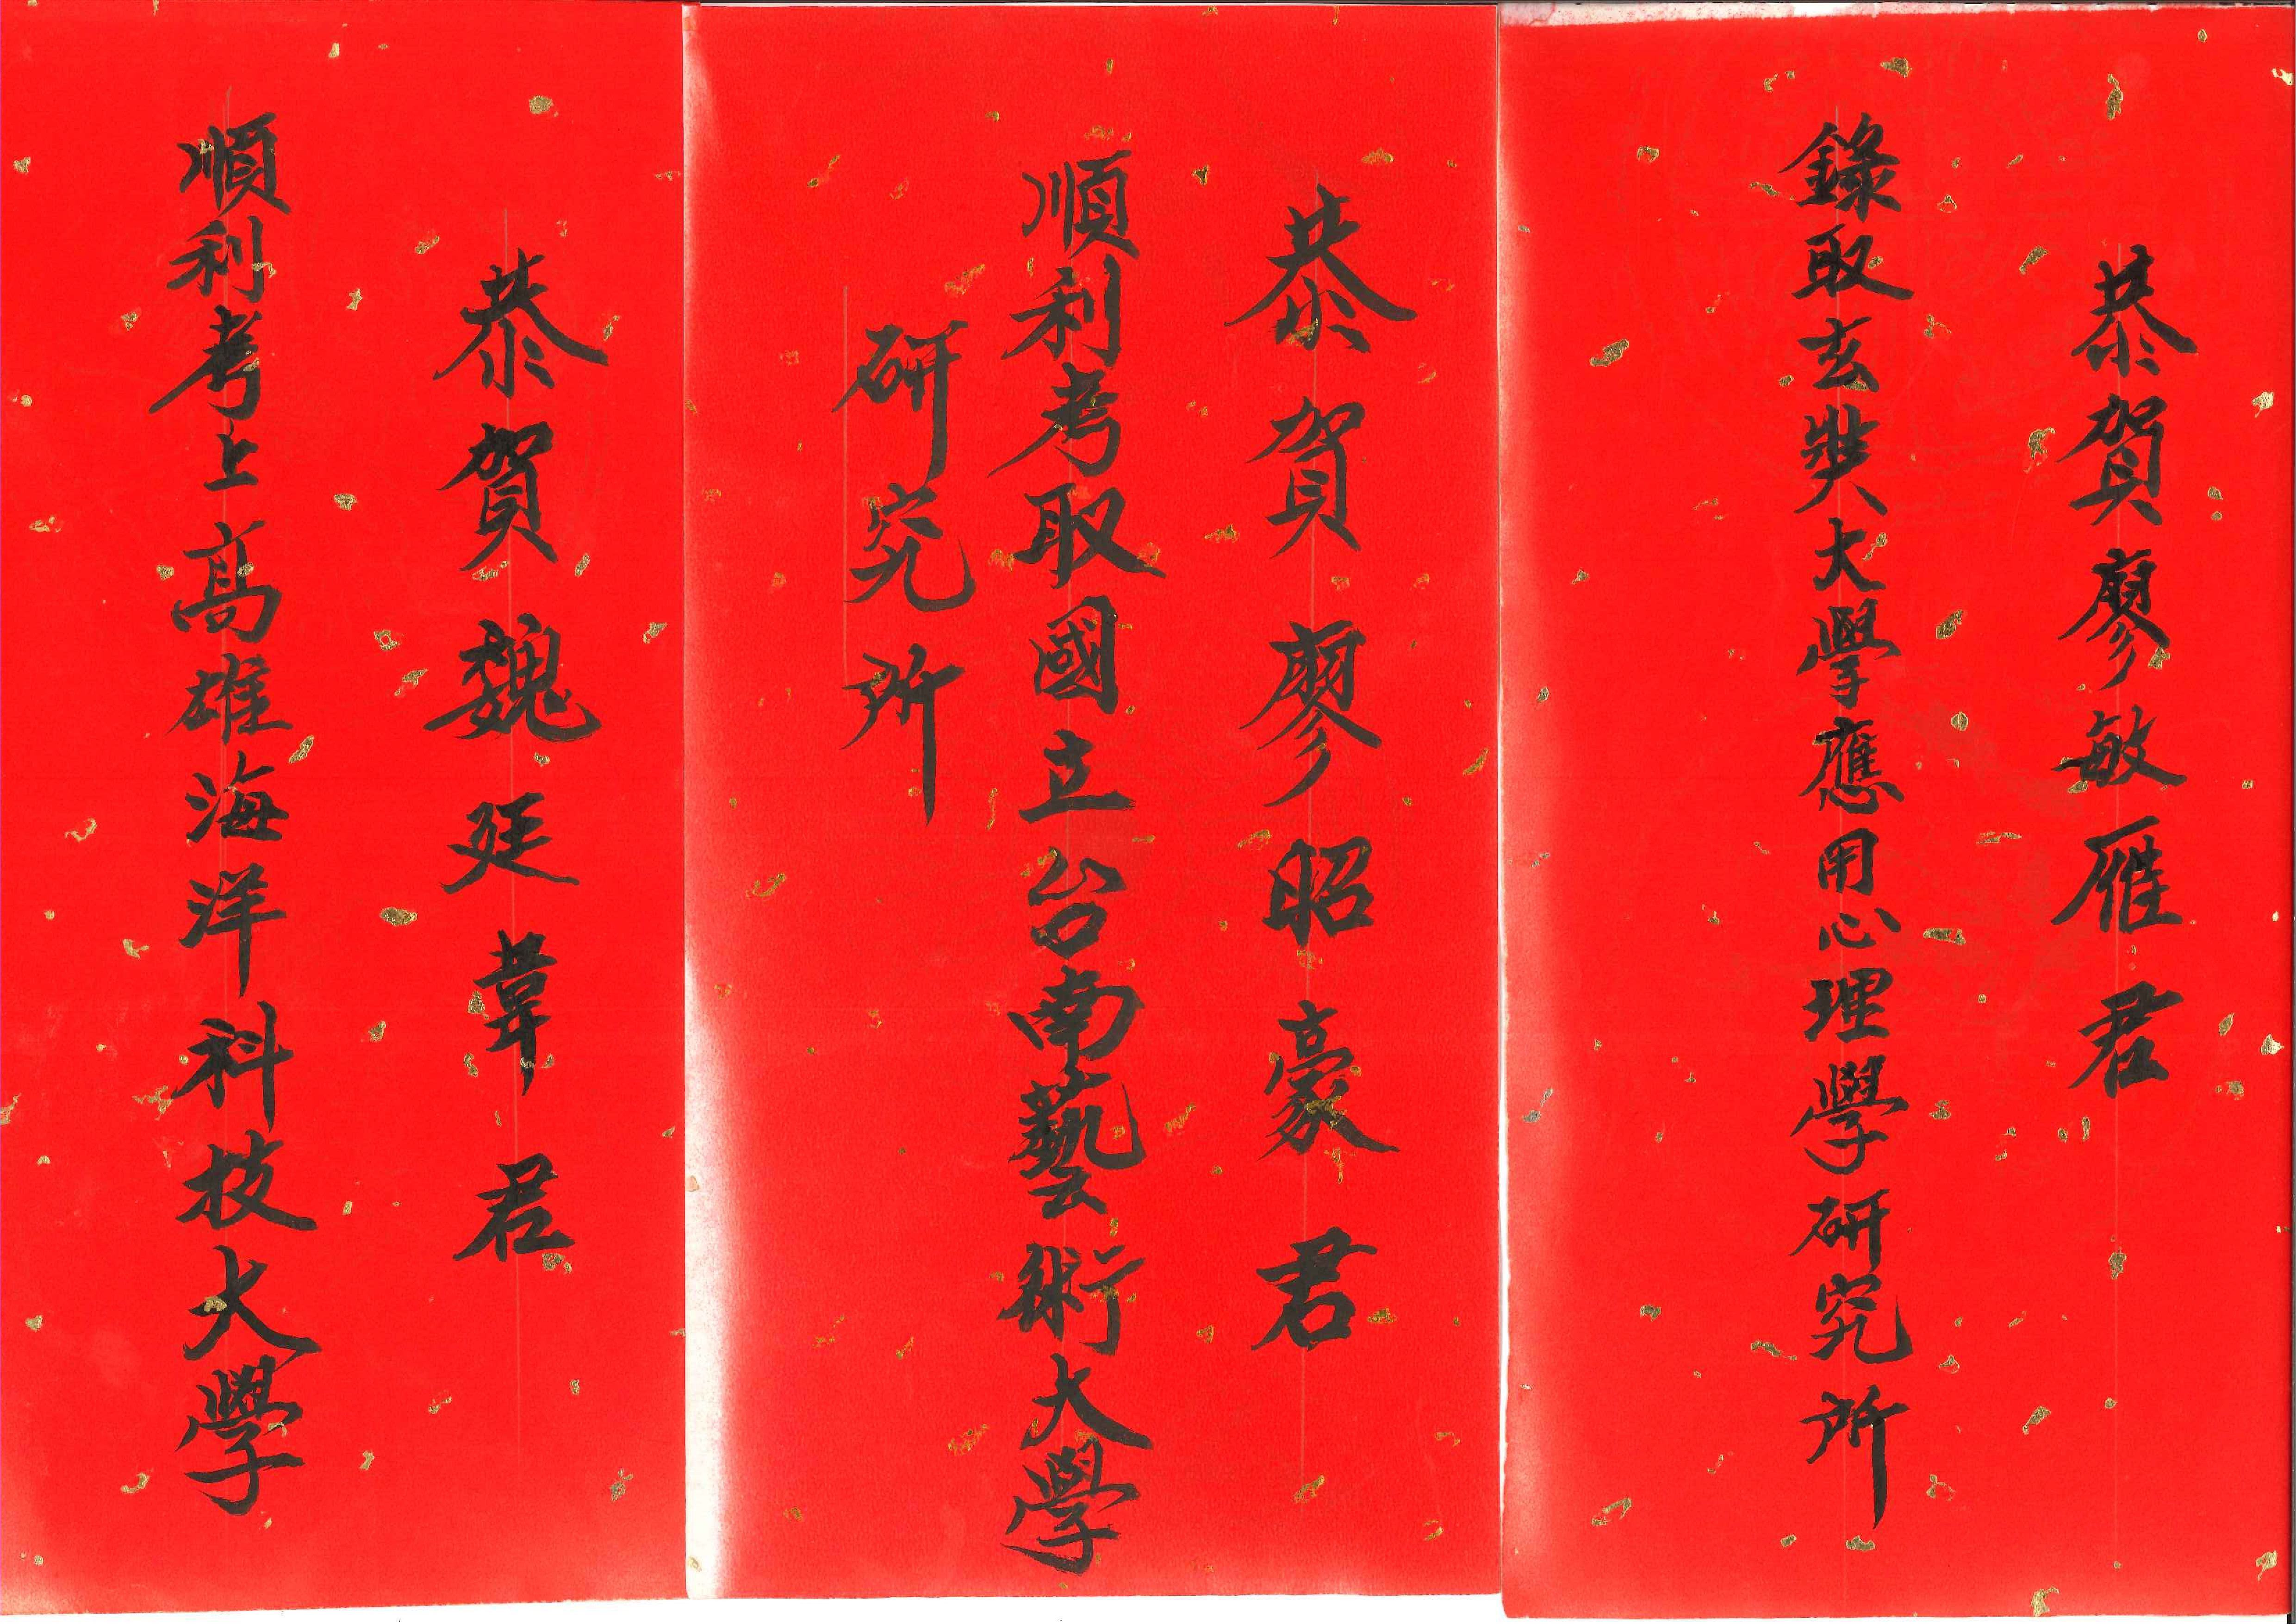 恭賀廖敏雁君
錄取玄奘大學應用心理學研究所
恭賀廖昭豪君
順利考取國立台南藝術大學
研究所
恭賀魏廷葦君
順利考上高雄海洋科技大學